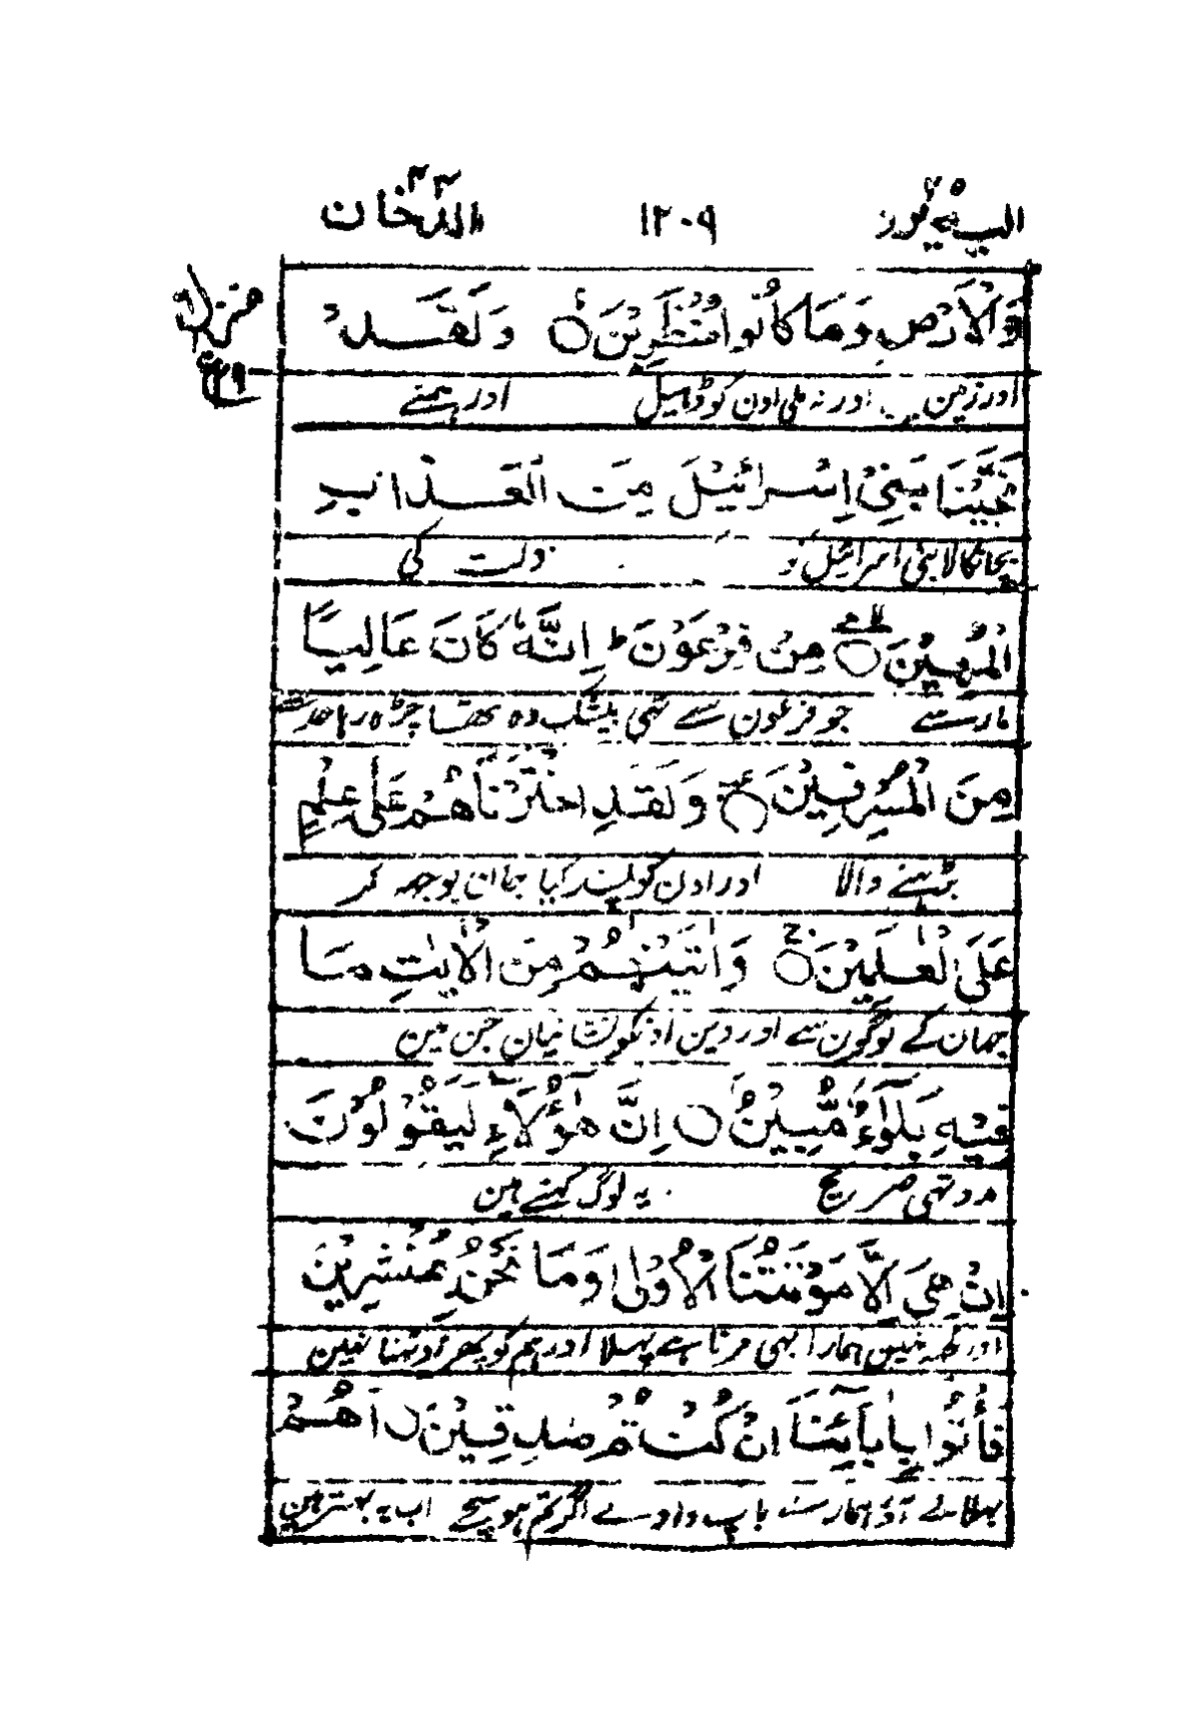 الیه یرد ٢٥ ١٢٠٩ الدخان ٤٤
منزل ٦
وَالْاَرْضِ وَمَا كَانُوْا مُنْظَرِيْنَ ○ وَلَقَدْ
اور زمین اور نہ ملی اون کو ڈھیل اور ہمنے
نَجَّيْنَا بَنِيْ اِسْرَائِيْلَ مِنَ الْعَذَابِ
بچا نکالا بنی اسرائیل کو ذلت کی
الْمُهِيْنِ ○ مِنْ فِرْعَوْنَ ط اِنَّهٗ كَانَ عَالِيًا
مار سے جو فرعون سے تہی بیشک وہ تھا چڑہ رہا حد سے
مِنَ الْمُسْرِفِيْنَ ○ وَلَقَدِ اخْتَرْنَاهُمْ عَلٰى عِلْمٍ
بڑہنے والا اور اون کو پسند کیا جان بوجھ کر
عَلَى الْعٰلَمِيْنَ ○ وَاٰتَيْنٰهُمْ مِنَ الْاٰيٰتِ مَا
جہان کے لوگون سے اور دین اونکو نشانیان جن مین
فِيْهِ بَلٰٓؤٌ مُّبِيْنٌ ○ اِنَّ هٰٓؤُلَآءِ لَيَقُوْلُوْنَ
مدد تہی صریح یہ لوگ کہتے ہین
اِنْ هِيَ اِلَّا مَوْتَتُنَا الْاُوْلٰى وَمَا نَحْنُ بِمُنْشَرِيْنَ
اور کچہ نہین ہمارا یہی مرنا ہے پہلا اور ہم کو پھر اوٹہنا نہین
فَأْتُوْا بِاٰبَآئِنَا اِنْ كُنْتُمْ صٰدِقِيْنَ ○ اَهُمْ
بھلا لے آؤ ہمارے باپ دادے اگر تم ہو سچے اب یہ بہتر ہین